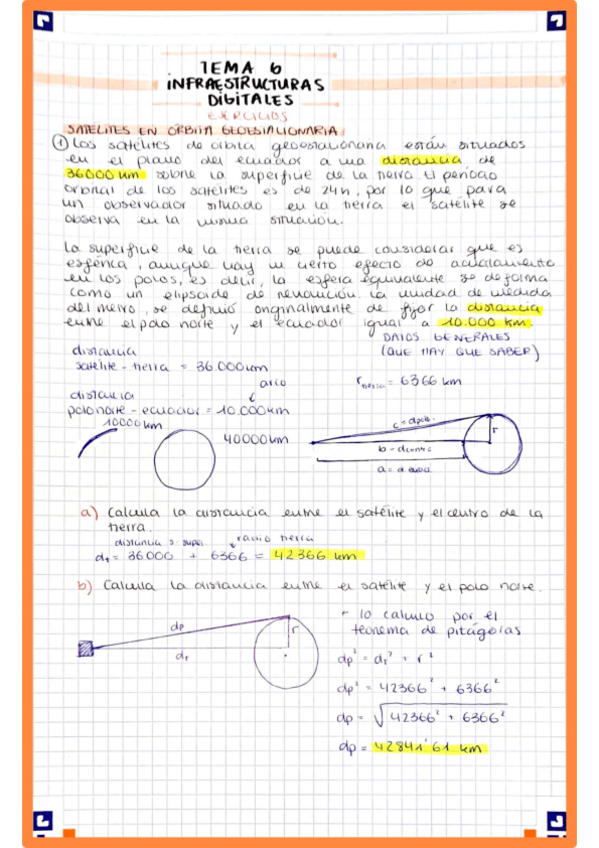 TEMA 6
INFRAESTRUCTURAS
DIGITALES
EJERCICIOS
SATELITES EN ORBITA GEOESTACIONARIA
① Los satélites de orbita geoestacionaria están situados
en el plano del ecuador a una distancia de
36000 km sobre la superficie de la tierra. El periodo
orbital de los satélites es de 24h, por lo que para
un observador situado en la tierra el satélite se
observa en la misma situación.
La superficie de la tierra se puede considerar que es
esférica, aunque hay un cierto efecto de achatamiento
en los polos, es decir, la esfera equivalente se deforma
como un elipsoide de revolución. La unidad de medida
del metro, se definió originalmente de fijar la distancia
entre el polo norte y el ecuador igual a 10.000 km.
DATOS GENERALES
(QUE HAY QUE SABER)
distancia
satélite - tierra = 36.000 km
r tierra = 6366 km
arco
distancia
polo norte - ecuador = 10.000km
10000 km
40000 km
c = dpolo
r
b = dcentro
a = d
a) Calcula la distancia entre el satélite y el centro de la
tierra.
distancia s. super. radio tierra
dt = 36000 + 6366 = 42366 km
b) Calcula la distancia entre el satélite y el polo norte.
- lo calculo por el
teorema de pitágoras
dp
r
dt
dp² = dt² + r²
dp² = 42366² + 6366²
dp = √42366² + 6366²
dp = 42841'61 km